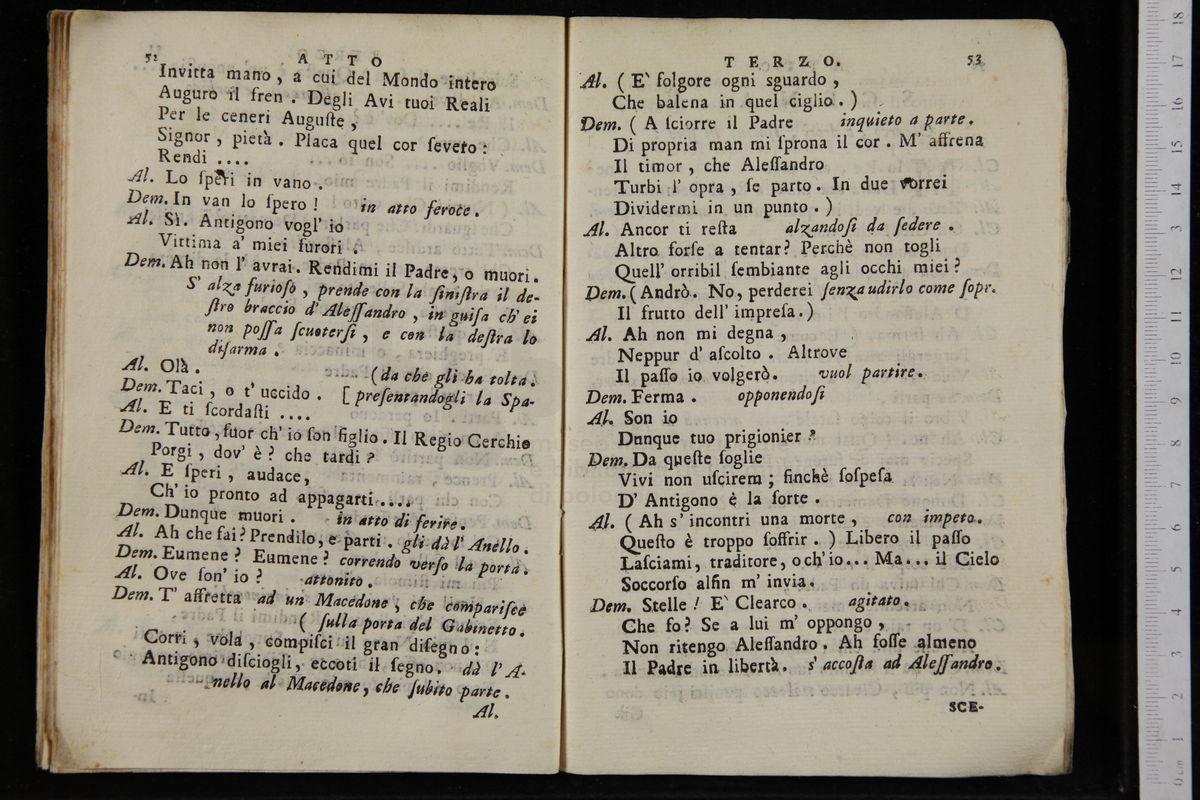 52 ATTO
Invitta mano, a cui del Mondo intero
Auguro il fren. Degli Avi tuoi Reali
Per le ceneri Auguſte,
Signor, pietà. Placa quel cor ſevero:
Rendi ....
Al. Lo ſperi in vano.
Dem. In van lo ſpero! in atto feroce.
Al. Sì. Antigono vogl' io
Vittima a' miei furori.
Dem. Ah non l' avrai. Rendimi il Padre, o muori.
S' alza furioſo, prende con la ſiniſtra il de-
ſtro braccio d' Aleſſandro, in guiſa ch' ei
non poſſa ſcuoterſi, e con la deſtra lo
diſarma.
Al. Olà. (da che gli ha tolta.
Dem. Taci, o t' uccido. [preſentandogli la Spa-
Al. E ti ſcordaſti ....
Dem. Tutto, fuor ch' io ſon figlio. Il Regio Cerchio
Porgi, dov' è? che tardi?
Al. E ſperi, audace,
Ch' io pronto ad appagarti....
Dem. Dunque muori. in atto di ferire.
Al. Ah che fai? Prendilo, e parti. gli dà l' Anello.
Dem. Eumene? Eumene? correndo verſo la porta.
Al. Ove ſon' io? attonito.
Dem. T' affretta ad un Macedone, che compariſce
(ſulla porta del Gabinetto.
Corri, vola, compiſci il gran diſegno:
Antigono diſciogli, eccoti il ſegno. dà l' A-
nello al Macedone, che ſubito parte.
Al.
TERZO. 53
Al. (E` folgore ogni sguardo,
Che balena in quel ciglio.)
Dem. (A ſciorre il Padre inquieto a parte.
Di propria man mi ſprona il cor. M' affrena
Il timor, che Aleſſandro
Turbi l' opra, ſe parto. In due vorrei
Dividermi in un punto.)
Al. Ancor ti reſta alzandoſi da ſedere.
Altro forſe a tentar? Perchè non togli
Quell' orribil ſembiante agli occhi miei?
Dem. (Andrò. No, perderei ſenza udirlo come ſopr.
Il frutto dell' impreſa.)
Al. Ah non mi degna,
Neppur d' aſcolto. Altrove
Il paſſo io volgerò. vuol partire.
Dem. Ferma. opponendoſi
Al. Son io
Dunque tuo prigionier?
Dem. Da queſte ſoglie
Vivi non uſcirem; finchè ſoſpeſa
D' Antigono è la ſorte.
Al. (Ah s' incontri una morte, con impeto.
Queſto è troppo ſoffrir.) Libero il paſſo
Laſciami, traditore, o ch' io... Ma... il Cielo
Soccorſo alfin m' invia.
Dem. Stelle! E` Clearco. agitato.
Che fo? Se a lui m' oppongo,
Non ritengo Aleſſandro. Ah foſſe almeno
Il Padre in libertà. s' accoſta ad Aleſſandro.
SCE-
0 cm 1 2 3 4 5 6 7 8 9 10 11 12 13 14 15 16 17 18